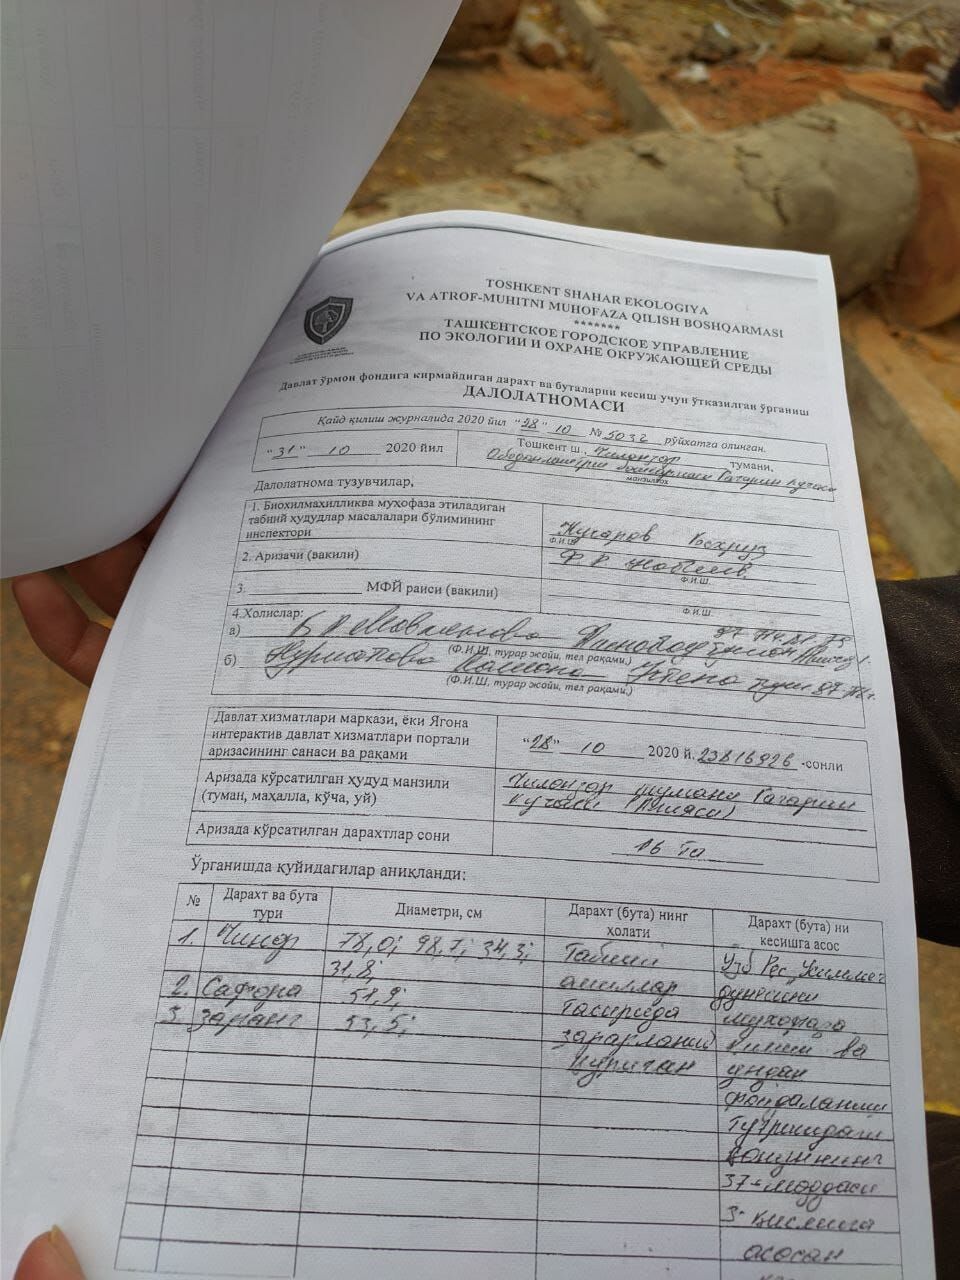 TOSHKENT SHAHAR EKOLOGIYA
VA ATROF-MUHITNI MUHOFAZA QILISH BOSHQARMASI
*******
ТАШКЕНТСКОЕ ГОРОДСКОЕ УПРАВЛЕНИЕ
ПО ЭКОЛОГИИ И ОХРАНЕ ОКРУЖАЮЩЕЙ СРЕДЫ
Давлат ўрмон фондига кирмайдиган дарахт ва буталарни кесиш учун ўтказилган ўрганиш
ДАЛОЛАТНОМАСИ
Қайд қилиш журналида 2020 йил "28" 10 № 5032 рўйхатга олинган.
"31" 10 2020 йил
Тошкент ш., Чилонзор тумани,
Ободонлаштриш бошқармаси Гагарин кучаси
манзилгох
Далолатнома тузувчилар,
1. Биохилмахилликва муҳофаза этиладиган
табиий ҳудудлар масалалари бўлимининг
инспектори
Бехруз
Ф.И.Ш.
2. Аризачи (вакили)
Ф.И.Ш.
3. МФЙ раиси (вакили)
Ф.И.Ш.
4.Холислар:
а)
(Ф.И.Ш, турар жойи, тел рақами,)
б)
(Ф.И.Ш, турар жойи, тел рақами,)
Давлат хизматлари маркази, ёки Ягона
интерактив давлат хизматлари портали
аризасининг санаси ва рақами
"28" 10 2020 й. 23816926 -сонли
Аризада кўрсатилган ҳудуд манзили
(туман, маҳалла, кўча, уй)
Чилонзор тумани Гагарин
кучаси
Аризада кўрсатилган дарахтлар сони
16 та
Ўрганишда қуйидагилар аниқланди:
№
Дарахт ва бута
тури
Диаметри, см
Дарахт (бута) нинг
ҳолати
Дарахт (бута) ни
кесишга асос
1. Чинор 78,0; 98,7; 34,3;
31,8;
2. Сафора 51,9;
3. Заранг 53,5;
Табиий
омиллар
таъсирида
зарарланиб
қуриган
Узб Рес „Усимлик
дунёсини
мухофаза
қилиш ва
ундан
фойдаланиш
туғрисидаги
қонунининг
37-моддаси
3-қисмига
асосан